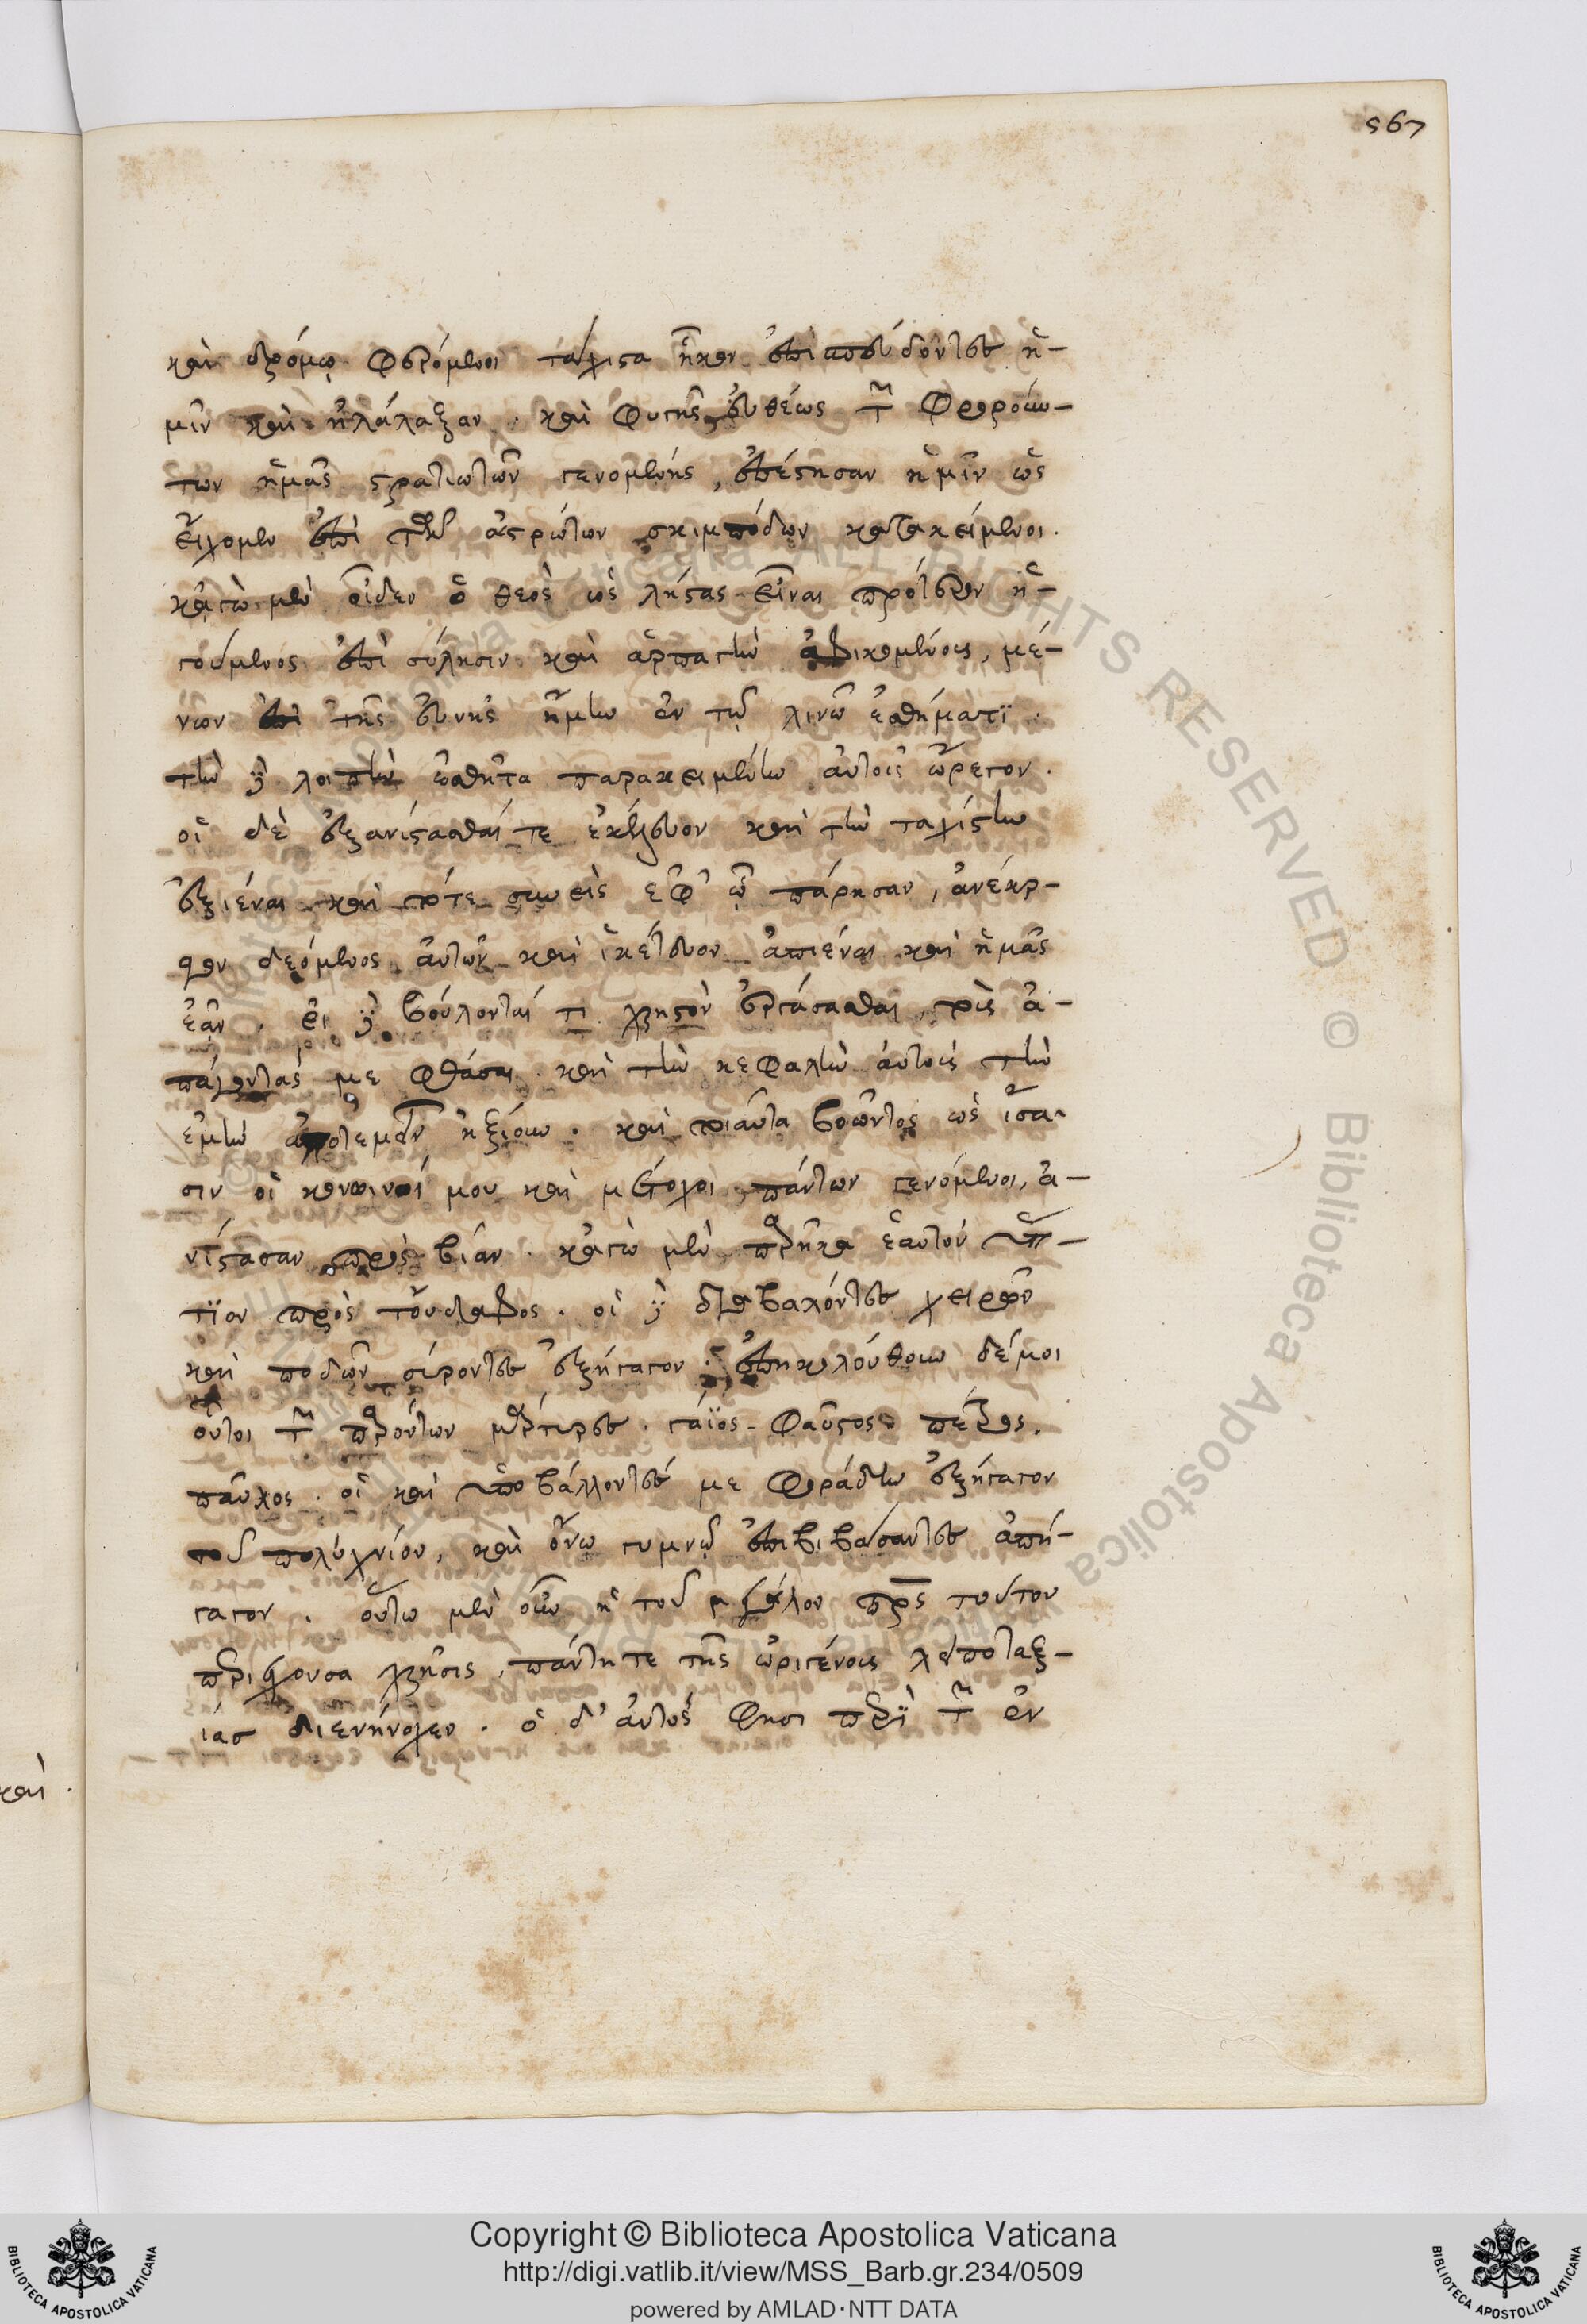 567
καὶ δρόμῳ φερόμενοι τάχιστα ἧκον ἐπισπεύδοντες ἡ-
μῖν καὶ ἠλάλαξαν. καὶ φυγῆς εὐθέως τῶν φρρούν-
των ἡμᾶς στρατιωτῶν γενομένης, ἐπέστησαν ἡμῖν ὡς
εἴχομεν ἐπὶ τῶν ἀστρώτων σκιμπόδων κατακείμενοι.
κἀγὼ μὲν οἶδεν ὁ θεὸς ὡς λήστας εἶναι πρότερον ἡ-
γούμενος ἐπὶ σύλησιν καὶ ἁρπαγὴν ἀφικομένους, μέ-
νων ἐπὶ τῆς εὐνῆς ἤμην ἐν τῷ λινῷ ἐσθήματϊ.
τὴν δὲ λοιπὴν ἐσθῆτα παρακειμένην αὐτοῖς ὤρεγον.
οἱ δὲ ἐξανίστασθαί τε ἐκέλευον καὶ τὴν ταχίστην
ἐξιέναι καὶ τότε συνεὶς ἐφ' ᾧ πάρησαν, ἀνέκρ-
αγον δεόμενος αὐτῶν καὶ ἱκέτευον ἀπιέναι καὶ ἡμᾶς
ἐᾶν. εἰ δὲ βούλονταί τι χρηστὸν ἐργάσασθαι, τοὺς ἀ-
πάγοντάς με φθάσαι. καὶ τὴν κεφαλὴν αὐτοὺς τὴν
ἐμὴν ἀποτεμεῖν ἠξίουν. καὶ τοιαῦτα βοῶντος ὡς ἴσα-
σιν οἱ κοινωνοί μου καὶ μέτοχοι πάντων γενόμενοι, ἀ-
νίστασαν πρὸς βίαν. κἀγὼ μὲν παρῆκα ἑαυτὸν ὕπ-
τϊον πρὸς τοὔδαφος. οἱ δὲ διαβαλόντες χειρῶν
καὶ ποδῶν σύροντες ἐξήγαγον. ἐπηκολούθουν δέ μοι
οὗτοι τῶν παρόντων μάρτυρες. γάϊος. φαῦστος. πέτρος.
παῦλος. οἳ καὶ ὑποβάλλοντές με φοράδην ἐξήγαγον
τοῦ πολυχνίου, καὶ ὄνῳ γυμνῷ ἐπιβιβάσαντες ἀπή-
γαγον. οὕτω μὲν οὖν ἡ τοῦ μεγάλου πρὸς τοῦτον
περιέχουσα χρῆσις, πάντη τε τῆς ὠριγένους λειποταξ-
ίας διενήνοχεν. ὁ δ' αὐτός φησι περὶ τῶν ἐν
καὶ.
Copyright © Biblioteca Apostolica Vaticana
http://digi.vatlib.it/view/MSS_Barb.gr.234/0509
powered by AMLAD·NTT DATA